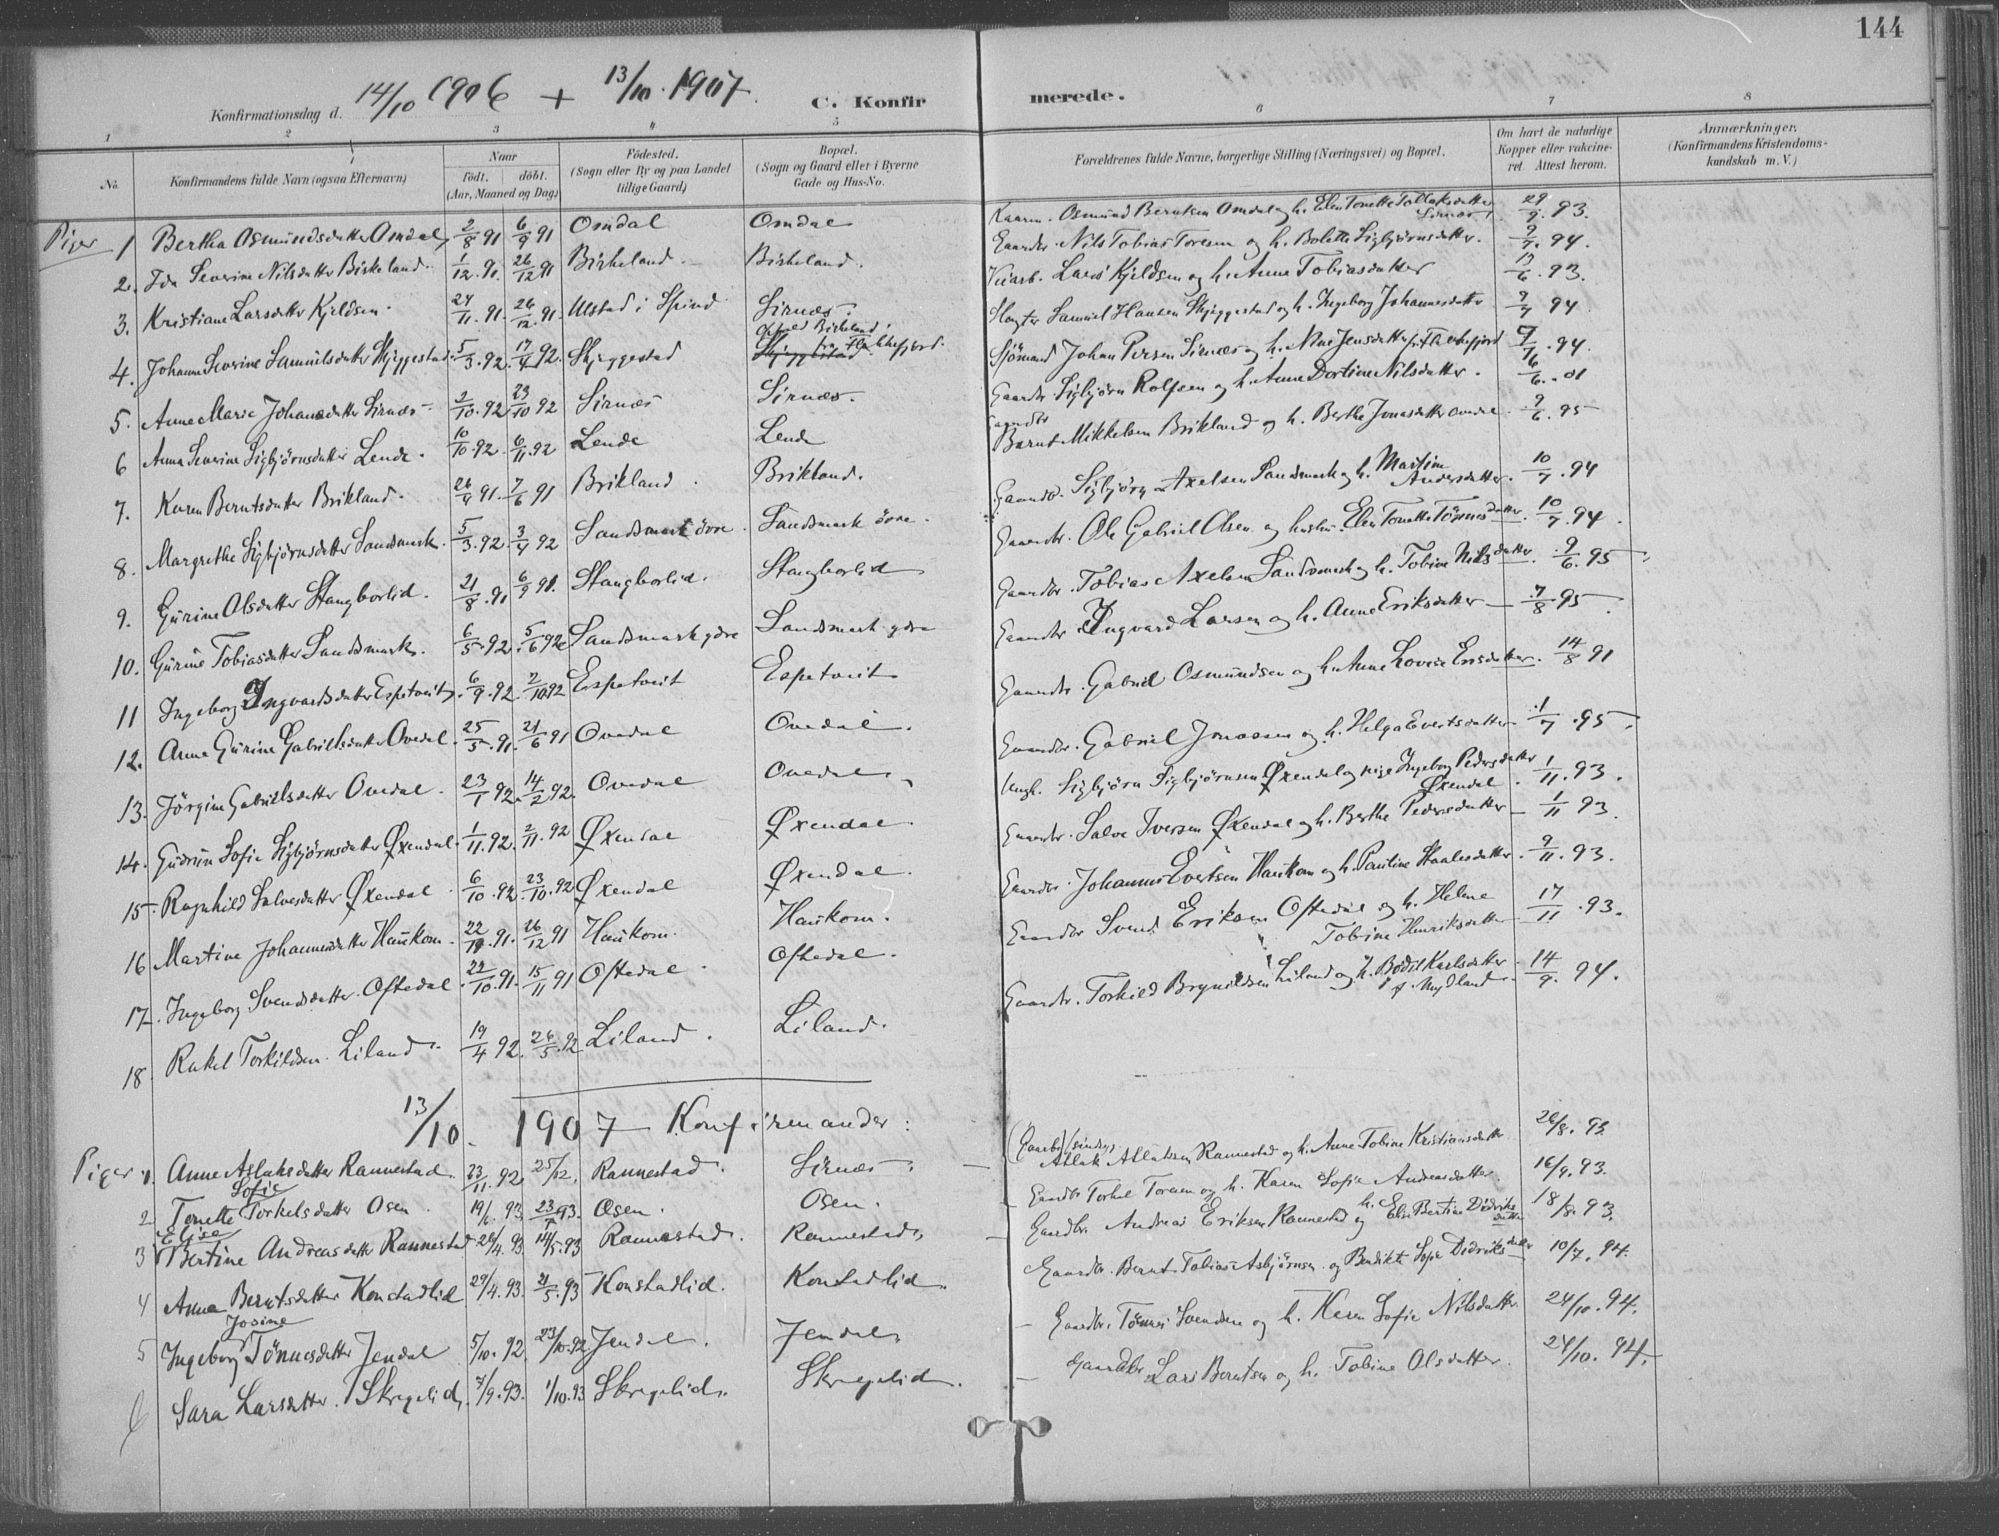 144
Konfirmationsdag d. 14/10 1906 + 13/10. 1907. C. Konfirmerede.
1 2 3 4 5 6 7 8
No. Konfirmandens fulde Navn (ogsaa Efternavn)
Naar
født. døbt.
(Aar, Maaned og Dag)
Fødested.
(Sogn eller By og paa Landet
tillige Gaard)
Bopæl.
(Sogn og Gaard eller i Byerne
Gade og Hus-No.
Forældrenes fulde Navne, borgerlige Stilling (Næringsvei) og Bopæl.
Om havt de naturlige
Kopper eller vakcine-
ret. Attest herom.
Anmærkninger.
(Konfirmandens Kristendoms-
kundskab m. V.)
Piger 1 Bertha Osmundsdatter Omdal 2/8 91 6/9 91 Omdal Omdal Osmund Berntsen Omdal og h. Elen Tonette Tollaksdatter Sirnæs 29/9. 93.
2. Ida Severine Nilsdatter Birkeland. 1/12. 91. 26/12 91 Birkeland. Birkeland. Gaardbr. Nils Tobias Toresen og h. Bolette Sigbjørnsdatter. 9/7. 94.
3. Kristiane Larsdatter Kjeldsen. 24/11. 91. 26/12. 91. Ulstad i Spind Sirnæs. Veiarb. Lars Kjeldsen og h. Anne Tobiasdatter 13/6. 93.
4. Johanne Severine Samuelsdatter Skjeggestad 5/3. 92. 17/4 92. Skjeggestad Birkeland. Flekkefjord. Skjeggestad Samuel Hansen Skjeggestad og h. Ingeborg Johannesdatter 9/7 94
5. Anne Marie Johansdatter Sirnæs 2/10. 92 23/10 92 Sirnæs Sirnæs. Sjømand Johan Persen Sirnæs og h. Jensdatter Flekkefjord 94.
6 Anna Severine Sigbjørnsdatter Lende. 10/10. 92. 6/11. 92 Lende Lende Gaardbr. Sigbjørn Rolfsen og h. Anne Dortine Nilsdatter. 6/6. 01
7. Karen Berntsdatter Brikland. 26/4 91. 7/6 91 Brikland. Brikland. Gaardbr Bernt Mikkelsen Brikland og h. Berthe Jonasdatter 9/6. 95
8. Margrethe Sigbjørnsdatter Sandsmark. 5/3. 92. 3/4 92 Sandsmark övre. Sandsmark övre. Gaardbr. Sigbjørn Axelsen Sandsmark og h. Martine Andersdatter. 10/7. 94
9. Gurine Olsdatter Stangborlid. 21/8. 91 6/9 91. Stangborlid. Stangborlid Gaardbr. Ole Gabriel Olsen og hustru Elen Tonette Tönnesdatter. 10/7. 94.
10. Gurine Tobiasdatter Sandsmark. 6/5. 92. 5/6 92 Sandsmark ydre Sandsmark ydre Gaardbr. Tobias Axelsen Sandsmark og h. Tobine Nilsdatter. 9/6. 95
11 Ingeborg Ingvardsdatter Espetveit. 6/9. 92. 2/10. 92 Espetveit Espetveit Gaardbr. Ingvard Larsen og h. Anne Eriksdatter 7/8. 95
12. Anne Gurine Gabrielsdatter Ovedal. 25/5. 91. 21/6 91 Ovedal Ovedal. Gaardbr. Gabriel Osmundsen og h. Anne Lovise Ersdatter. 14/8 91
13. Jörgine Gabrielsdatter Ovedal. 23/1 92. 14/2 92. Ovedal Ovedal. Gaardbr. Gabriel Jonassen og h. Helga Evertsdatter 1/7. 95
14. Gudrun Sofie Sigbjørnsdatter Øxendal. 1/11. 92. 2/11. 92 Øxendal Øxendal Ungk. Sigbjörn Sigbjörnsen Øxendal og pige Ingeborg Pedersdatter Øxendal. 1/11. 93.
15. Ragnhild Salvesdatter Øxendal. 6/10. 92. 23/10. 92 Øxendal Øxendal. Gaardbr. Salve Iversen Øxendal og h. Berthe Pedersdatter 1/11 93.
16 Martine Johannesdatter Haukom. 91. 26/12 91 Haukom. Haukom. Gaardbr. Johannes Evertsen Haukom og h. Pauline Staalesdatter. 9/11. 93.
17. Ingeborg Svendsdatter Oftedal. 22/10. 91. 15/11 91 Oftedal. Oftedal. Gaardbr Svend Eriksen Oftedal og h. Helene Tobine Henriksdatter 17/11. 93.
18. Rakel Torkildsen Liland. 19/4 92. 26/5. 92 Liland. Liland. Gaardbr. Torkild Brynildsen Liland og h. Bodil Karlsdatter f. Mydland. 14/9. 94.
13/10. 1907 Konfirmander:
Piger 1. Anne Aslaksdatter Rannestad 23/11. 92 25/12. Rannestad. Sirnæs. Aslak Atlaksen Rannestad og h. Anne Tobine Kristiansdatter 26/8. 93
2 Tonette Sofie Torkelsdatter Osen. 19/6. 93 23/7 93. Osen. Osen. Gaardbr Torkel Toresen og h. Karen Sofie Andreasdatter. 16/9. 93.
3 Elise Bertine Andreasdatter Rannestad 93 14/5. 93 Rannestad. Rannestad. Gaardbr. Andreas Eriksen Rannestad og h. Elen Bertine Didriksdatter 18/8. 93.
4 Anna Berntsdatter Konstadlid 29/4. 93. 21/5. 93 Konstadlid. Konstadlid. Gaardbr. Bernt Tobias Asbjørnsen og Benedikte Sofie Didriksdatter 10/7. 94.
5 Ingeborg Josine Tönnesdatter Jendal 5/10. 92. 23/10. 92 Jendal. Jendal. Gaardbr. Tönnes Svendsen og h. Karen Sofie Nilsdatter. 24/10. 94.
6 Sara Larsdatter Skregelid. 7/9. 93. 1/10. 93 Skregelid. Skregelid. Gaardbr. Lars Berntsen og h. Tobine Olsdatter. 24/10. 94.